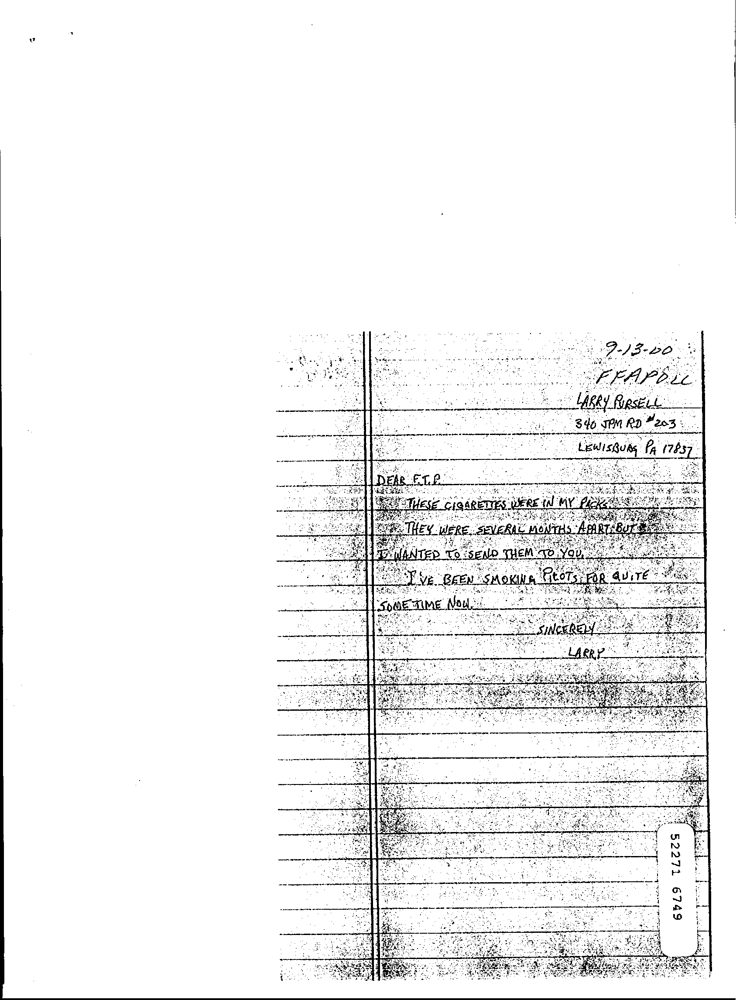 9-13-00
LARRY PURSELL
340 JPM RD #203
LEWISBURG PA 17837
DEAR F.T.P.
THESE CIGARETTES WERE IN MY PACKS
THEY WERE SEVERAL MONTHS APART BUT
I WANTED TO SEND THEM TO YOU.
I'VE BEEN SMOKING PILOTS FOR QUITE
SOME TIME NOW.
SINCERELY
LARRY
52271 6749